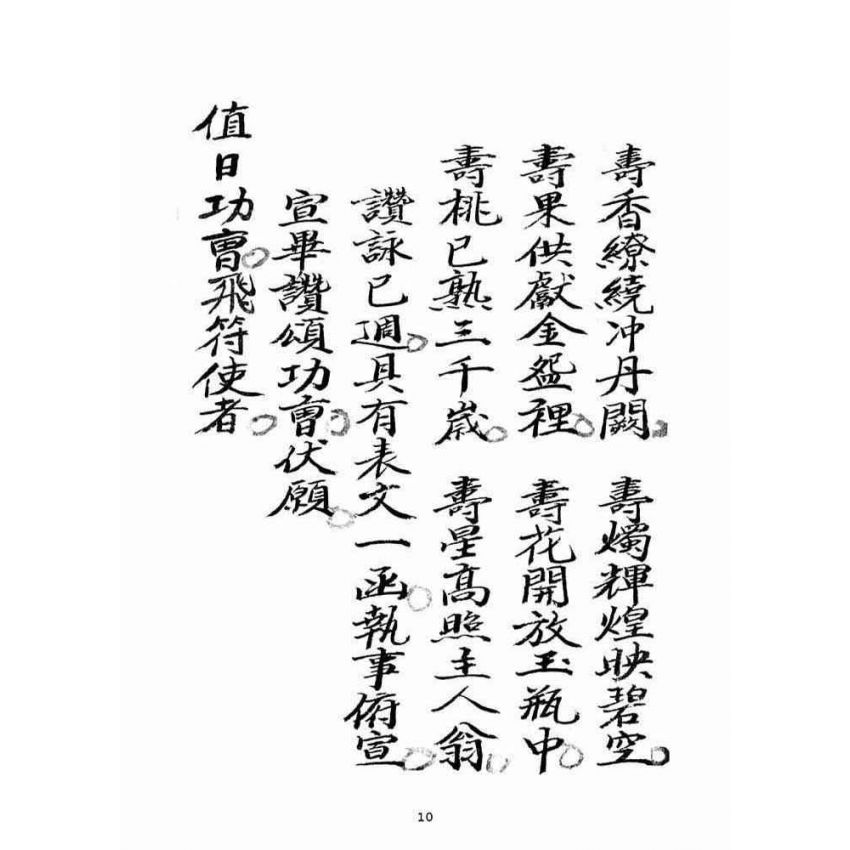 壽香繚繞冲丹闕 壽燭輝煌映碧空
壽果供獻金盤裡 壽花開放玉瓶中
壽桃已熟三千歲 壽星高照主人翁
讚詠已週具有表文一函執事俯宣
宣畢讚頌功曹伏願
值日功曹飛符使者
10